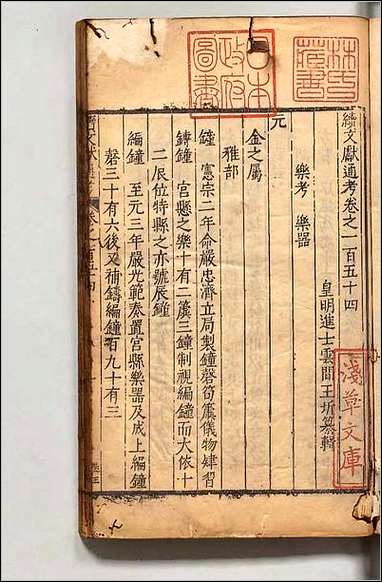 續文獻通考卷之一百五十四
皇明進士雲間王圻纂輯
樂考 樂器
元
金之屬
雅部
鐘 憲宗二年命嚴忠濟立局製鐘磬筍簴儀物肄習
鎛鐘 宮縣之樂十有二簴三鐘制視編鐘而大依十
二辰位特縣之亦號辰鐘
編鐘 至元三年嚴光範奏置宮縣樂器及成上編鐘
磬三十有六後又補鑄編鐘百九十有三
林氏藏書
日本政府圖書
淺草文庫